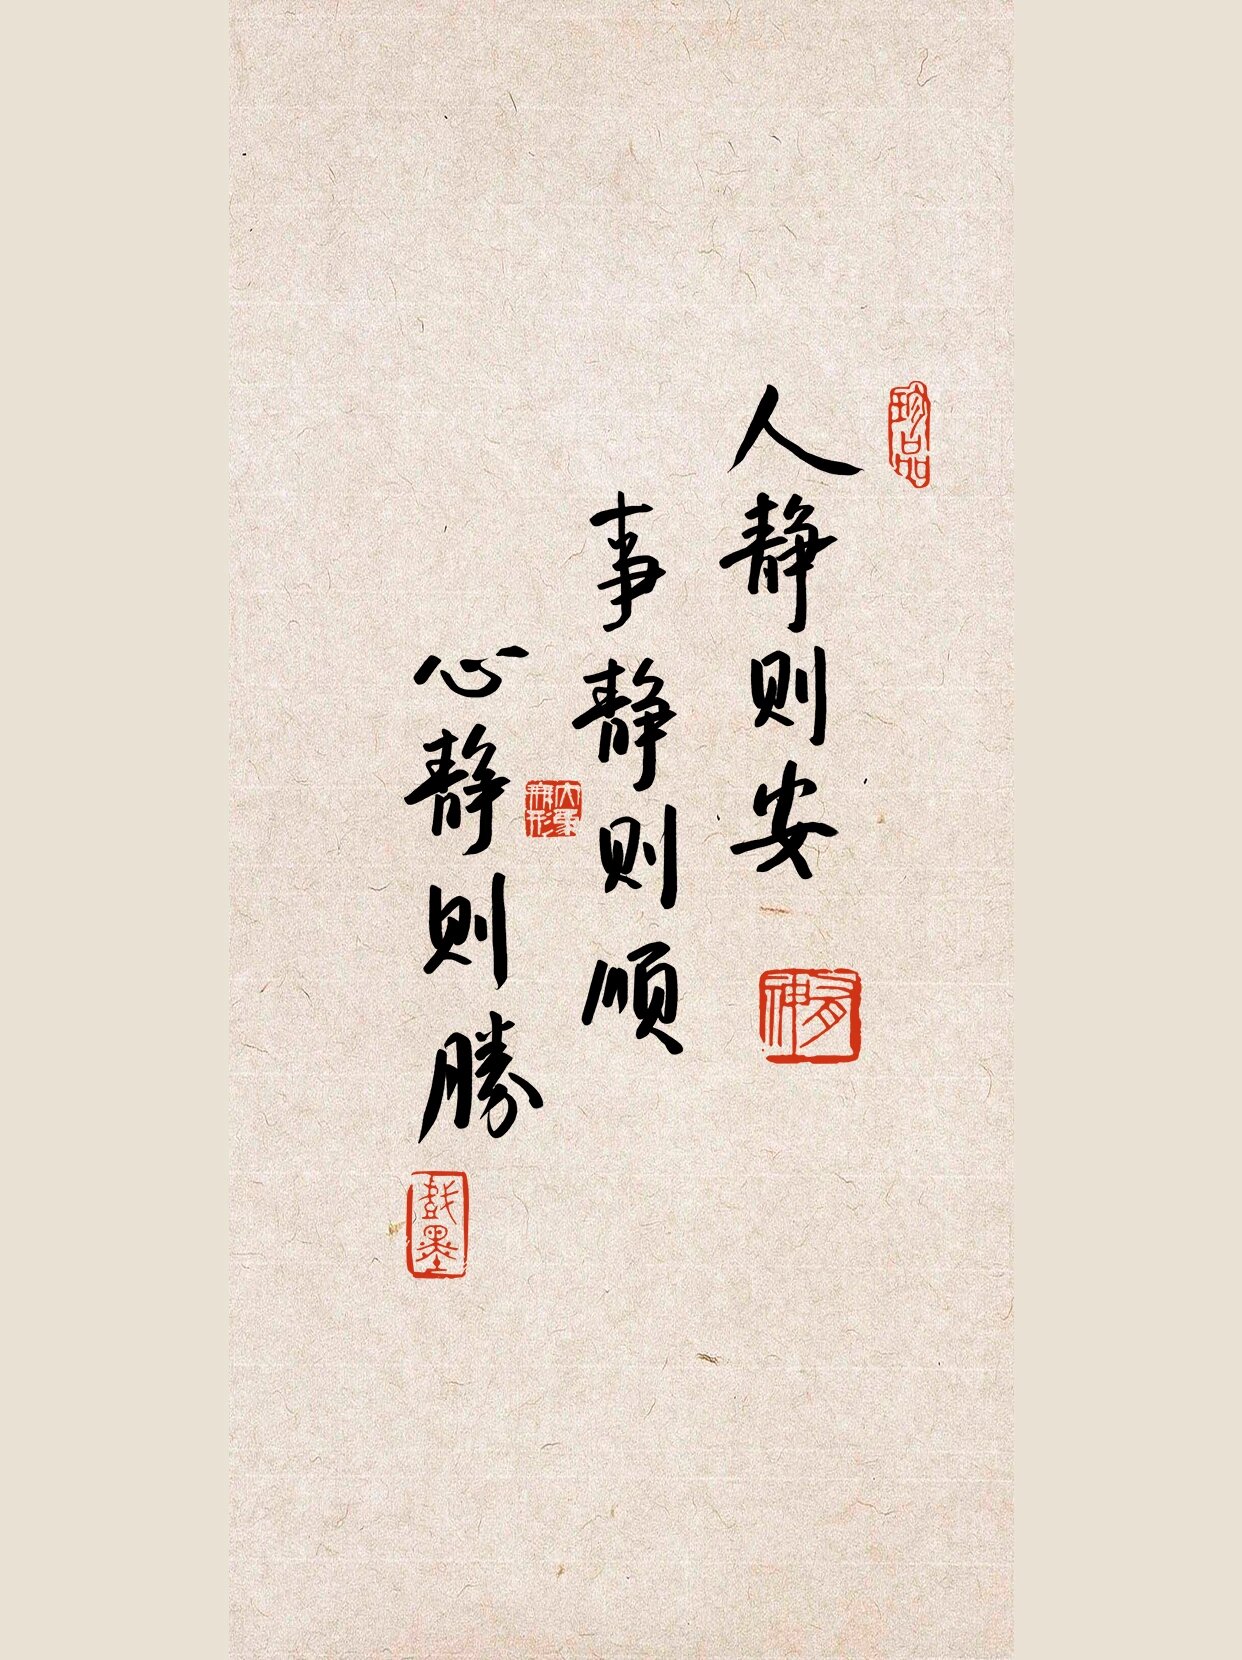 珍品
人静则安
有神
事静则顺
大象无形
心静则勝
戲墨